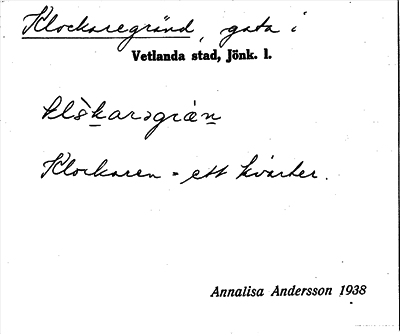 Klockaregränd, gata i
Vetlanda stad, Jönk. l.
klȯ̀karəgrän
Klockaren = ett kvarter.
Annalisa Andersson 1938